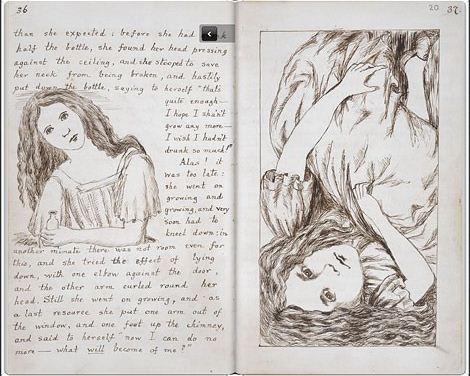 36
than she expected : before she had
half the bottle, she found her head pressing
against the ceiling, and she stooped to save
her neck from being broken, and hastily
put down the bottle, saying to herself "that's
quite enough—
I hope I shan't
grow any more—
I wish I hadn't
drunk so much!"
Alas! it
was too late :
she went on
growing and
growing, and very
soon had to
kneel down : in
another minute there was not room even for
this, and she tried the effect of lying
down, with one elbow against the door,
and the other arm curled round her
head. Still she went on growing, and as
a last resource she put one arm out of
the window, and one foot up the chimney,
and said to herself "now I can do no
more— what will become of me?"
20 37.